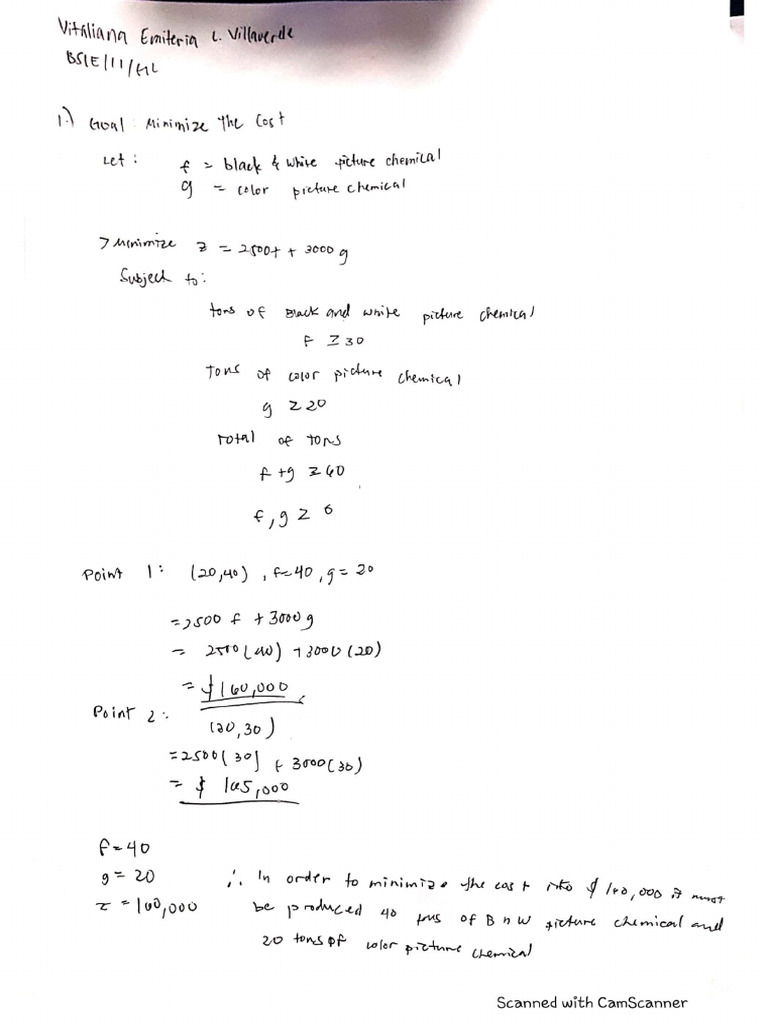 Vitaliana Emiteria L. Villaverde
BSIE/11/
1.) Goal: Minimize The Cost
Let: f = black & white picture chemical
g = color picture chemical
> Minimize z = 2500f + 3000g
Subject to:
tons of Black and white picture chemical
f ≥ 30
Tons of color picture chemical
g ≥ 20
Total of tons
f + g ≥ 60
f, g ≥ 0
Point 1: (20,40), f=40, g=20
= 2500 f + 3000 g
= 2500(40) + 3000(20)
= $160,000
Point 2:
(30,30)
= 2500(30) + 3000(30)
= $165,000
f = 40
g = 20
z = 160,000
∴ In order to minimize the cost into $160,000 it must
be produced 40 tons of B n W picture chemical and
20 tons of color picture chemical
Scanned with CamScanner